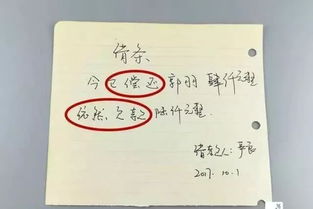 借条
今已偿还郭羽肆仟元整
依然欠款陆仟元整.
借款人:
2017.10.1